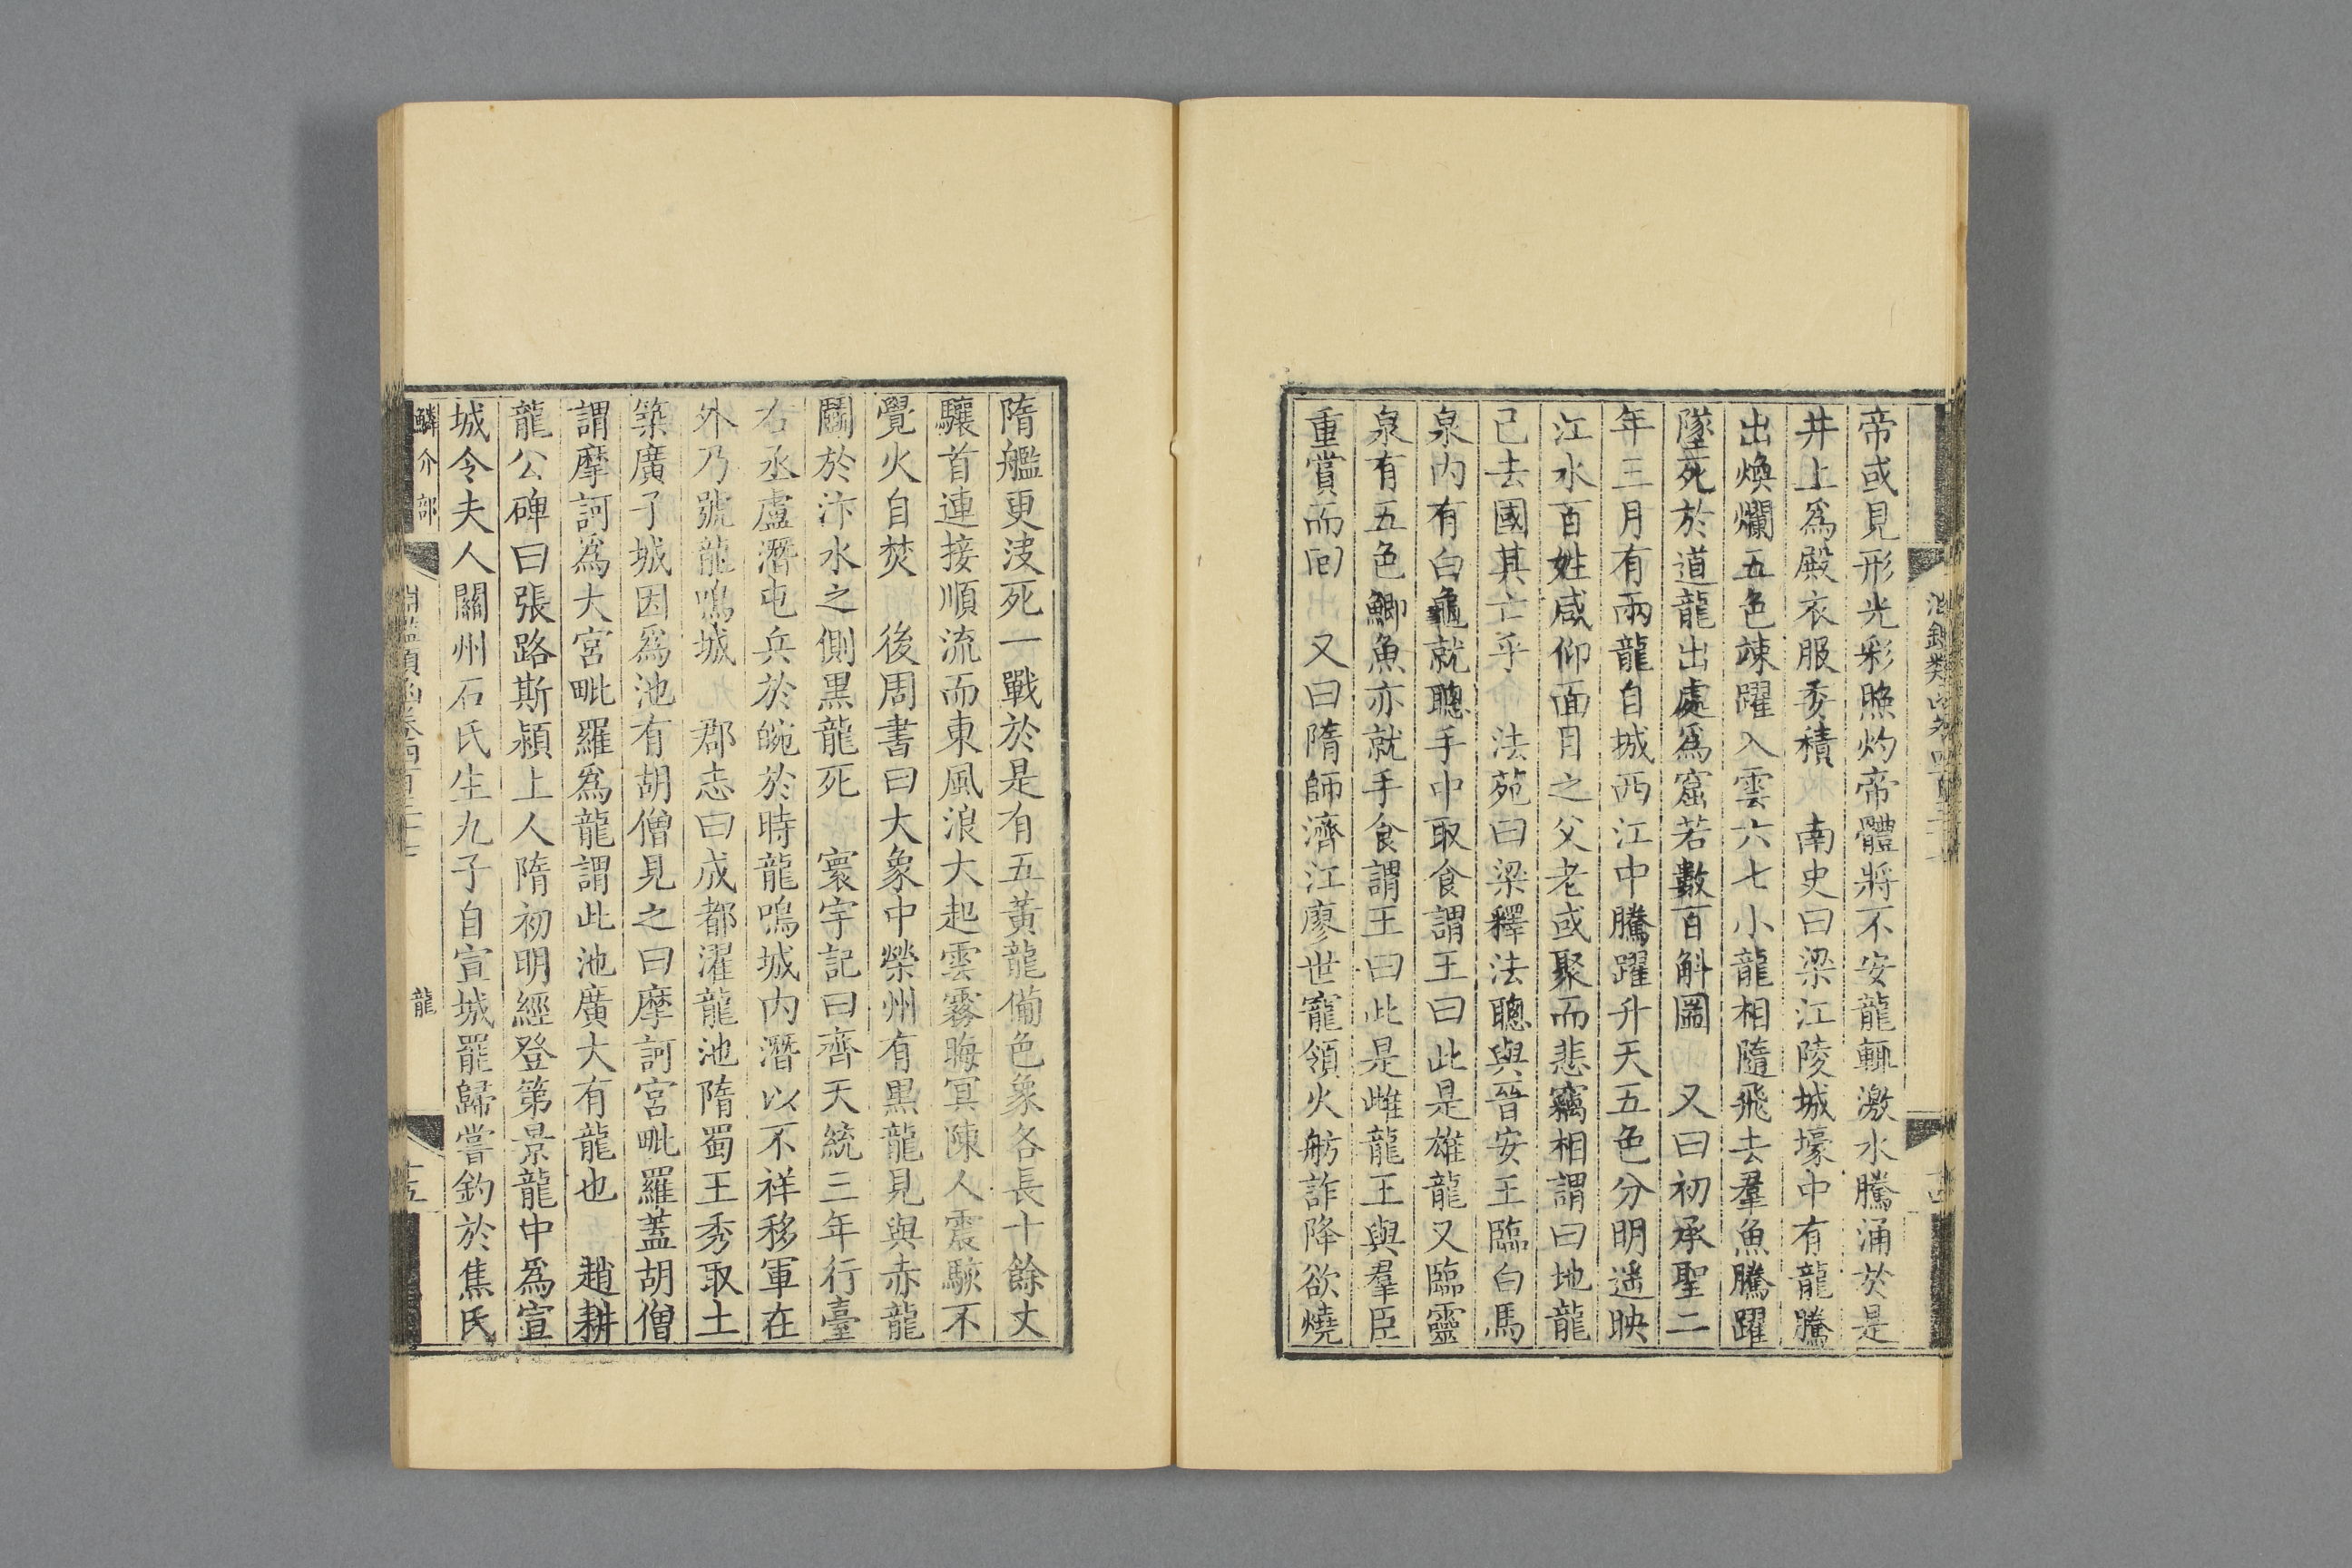 帝或見形光彩照灼帝體將不安龍輒激水騰涌於是
井上爲殿衣服委積 南史曰梁江陵城壕中有龍騰
出煥爛五色竦躍入雲六七小龍相隨飛去羣魚騰躍
墜死於道龍出處爲窟若數百斛圌 又曰初承聖二
年三月有兩龍自城西江中騰躍升天五色分明遥映
江水百姓咸仰面目之父老或聚而悲竊相謂曰地龍
已去國其亡乎 法苑曰梁釋法聰與晉安王臨白馬
泉内有白龜就聰手中取食謂王曰此是雄龍又臨靈
泉有五色鯽魚亦就手食謂王曰此是雌龍王與羣臣
重賞而回 又曰隋師濟江廖世寵領火舫詐降欲燒
隋艦更決死一戰於是有五黃龍備色象各長十餘丈
驤首連接順流而東風浪大起雲霧晦冥陳人震駭不
覺火自焚 後周書曰大象中滎州有黒龍見與赤龍
鬬於汴水之側黒龍死 寰宇記曰齊天統三年行臺
右丞盧潛屯兵於皖於時龍鳴城内潛以不祥移軍在
外乃號龍鳴城 郡志曰成都濯龍池隋蜀王秀取土
築廣子城因爲池有胡僧見之曰摩訶宮毗羅蓋胡僧
謂摩訶爲大宮毗羅爲龍謂此池廣大有龍也 趙耕
龍公碑曰張路斯頴上人隋初明經登第景龍中爲宣
城令夫人關州石氏生九子自宣城罷歸嘗釣於焦氏
鱗介部
淵鑑類函卷四百三十七
龍
十五